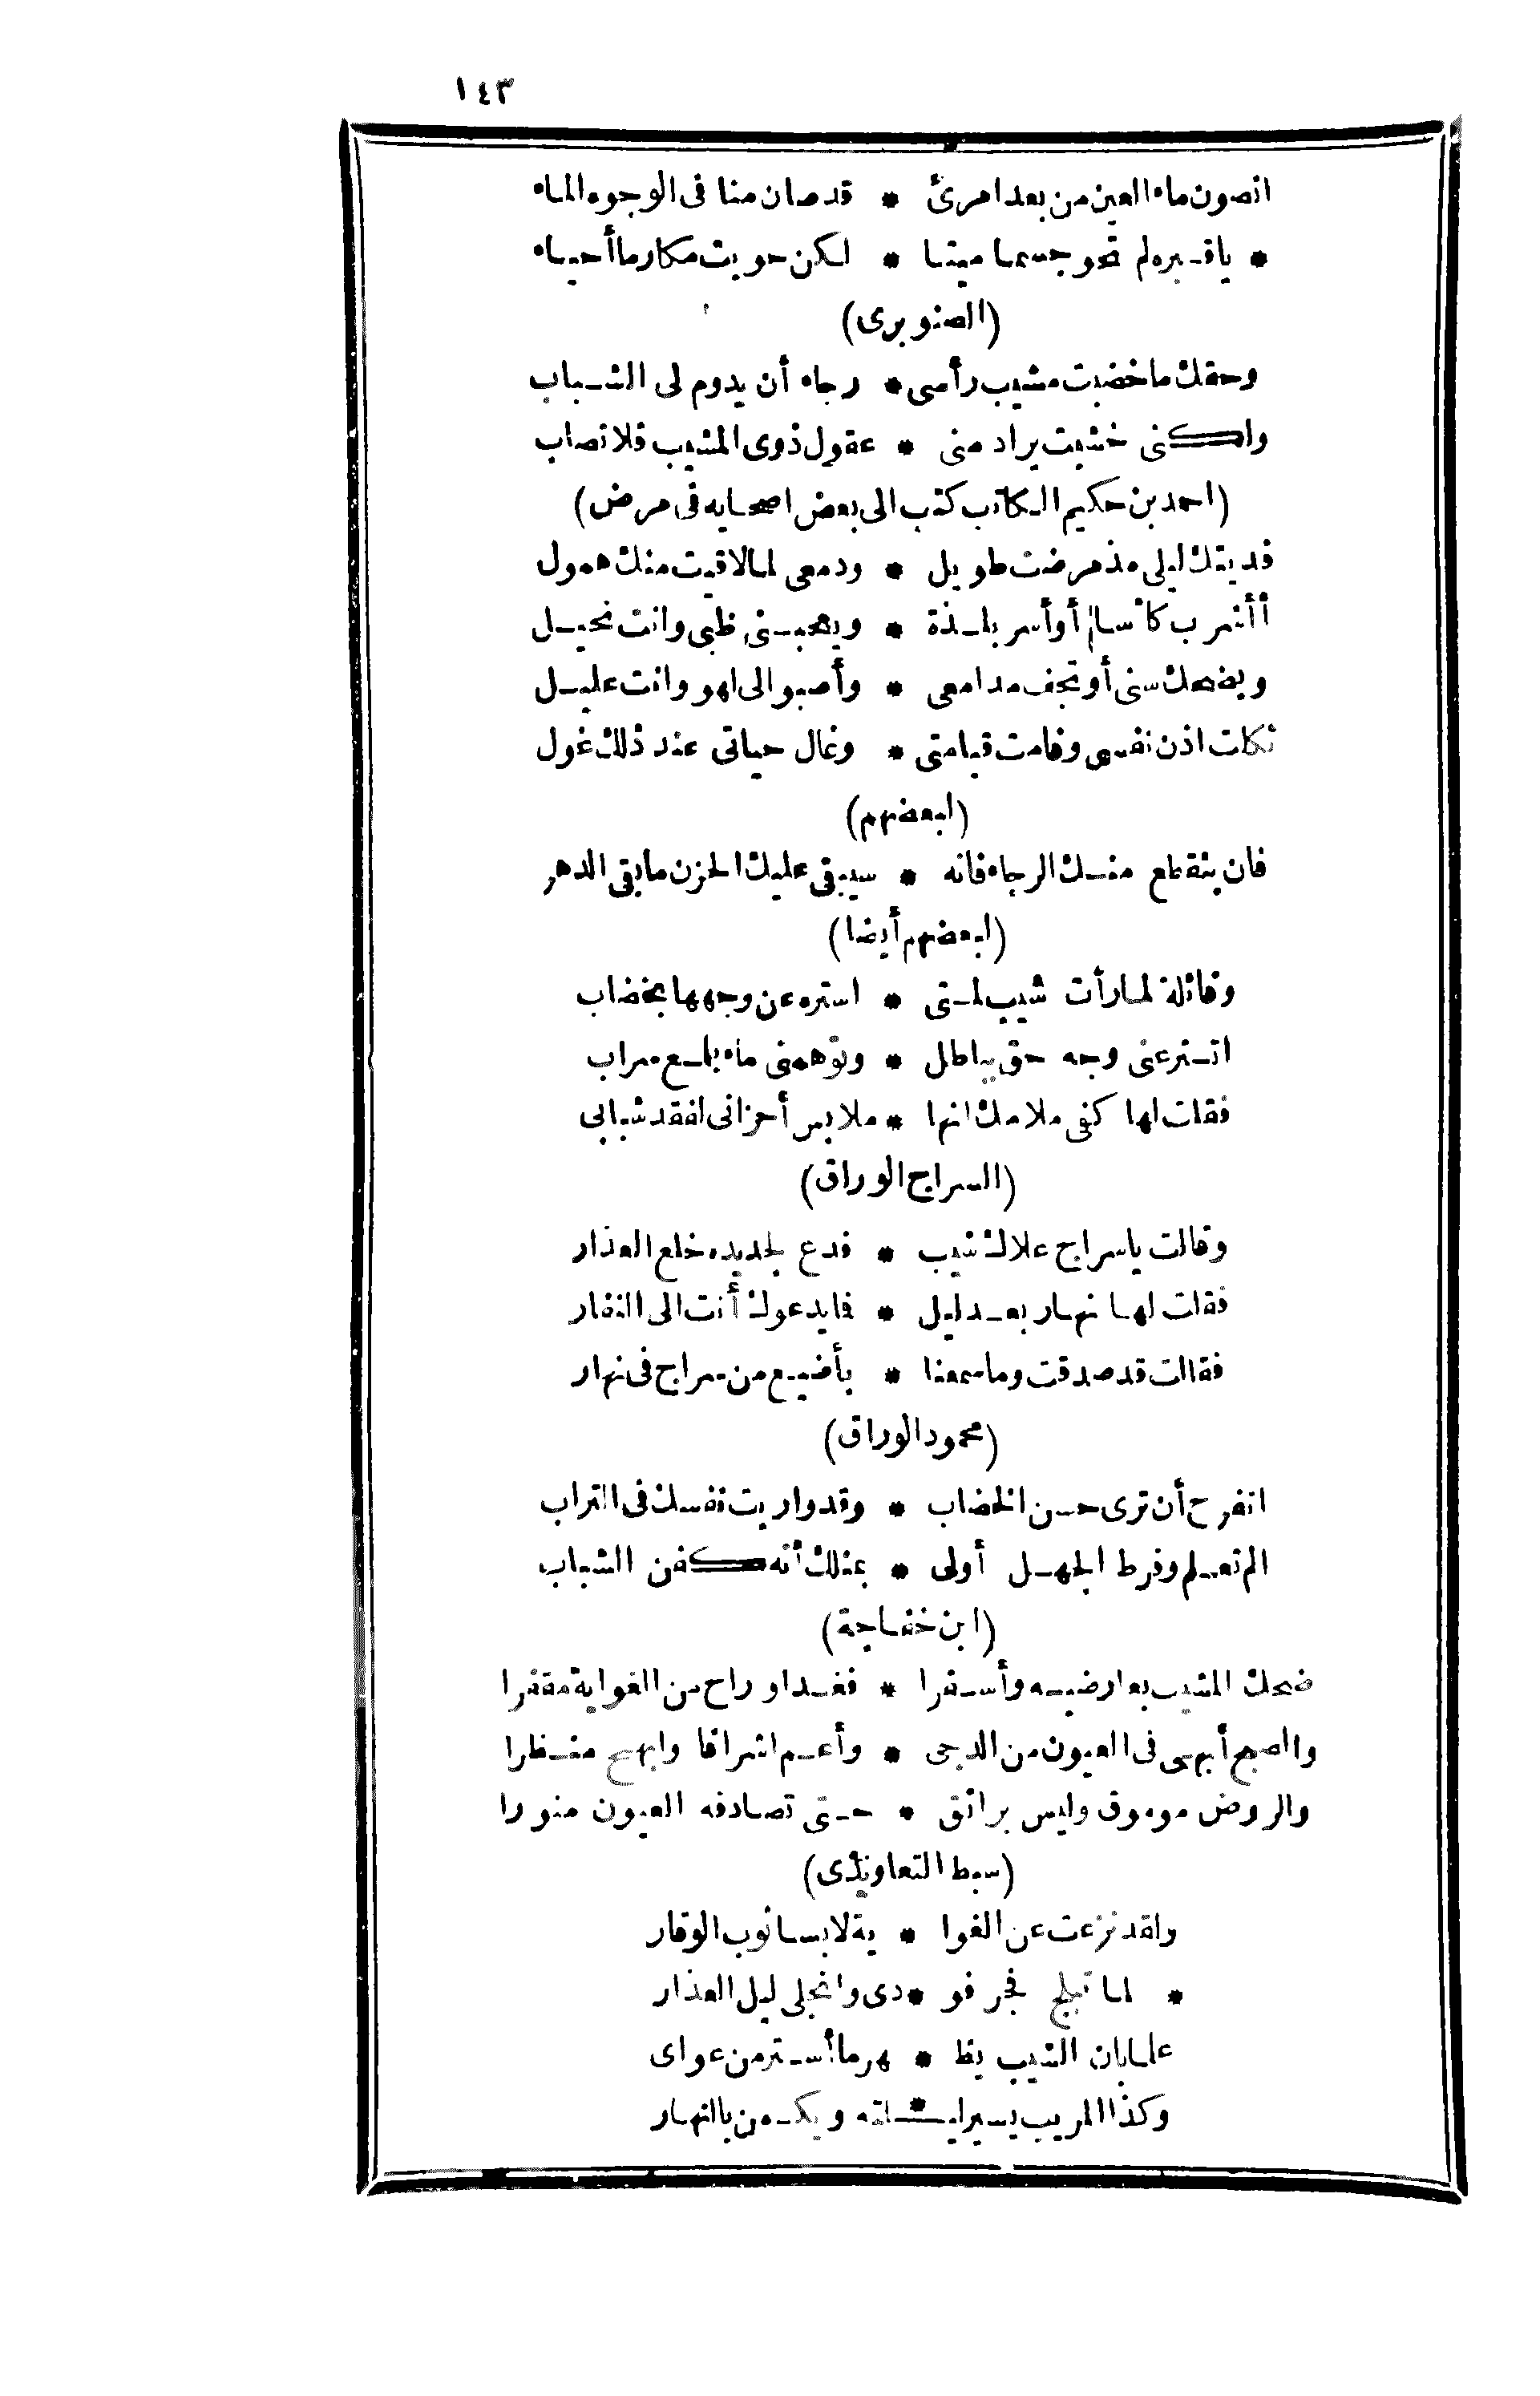 ١٤٣
انصون ماء العين من بعد امرئ * قد صان منا فى الوجوه الماء
* يا قبره لم تحو جسما ميتا * لكن حويت مكارما أحياء
(الصنوبرى)
وحقك ما خضبت مشيب رأسى * رجاء أن يدوم لى الشباب
ولكنى خشيت يراد منى * عقول ذوى المشيب فلا تصاب
(احمد بن حكيم الكاتب كتب الى بعض اصحابه فى مرض)
فديتك ليلى مذ مرضت طويل * ودمعى لما لاقيت منك همول
أأشرب كأسا أو أسر بلذة * ويعجبنى ظبى وانت نحيل
ويضحك سنى أو تجف مدامعى * وأصبو الى لهو وانت عليل
ثكلت اذن نفسى وقامت قيامتى * وغال حياتى عند ذلك غول
(لبعضهم)
فان ينقطع منك الرجاء فانه * سيبقى عليك الحزن ما بقى الدهر
(لبعضهم أيضا)
وقائلة لما رأت شيب لمتى * استره عن وجهها بخضاب
اتستر عنى وجه حق بباطل * وتوهمنى ماء بلمع سراب
فقلت لها كفى ملامك انها * ملابس أحزانى لفقد شبابى
(السراج الوراق)
وقالت يا سراج علاك شيب * فدع لجديده خلع العذار
فقلت لها نهار بعد ليل * فما يدعوك أنت الى النفار
فقالت قد صدقت وما سمعنا * بأضيع من سراج فى نهار
(محمود الوراق)
اتفرح أن ترى حسن الخضاب * وقد واريت نفسك فى التراب
الم تعلم وفرط الجهل أولى * بمثلك أنه كفن الشباب
(ابن خفاجة)
ضحك المشيب بعارضيه وأسفرا * فغدا وراح من الغواية مقفرا
والصبح أبهى فى العيون من الدجى * وأعم اشراقا وابهج منظرا
والروض موموق وليس برائق * حتى تصادفه العيون منورا
(سبط التعاويذى)
ولقد نزعت عن الغوا * ية لابسا ثوب الوقار
* لما تبلج فجر فو * دى وانجلى ليل العذار
علما بان الشيب يظ * هر ما أستر من عوارى
وكذا المريب يسير لي * لته ويكمن بالنهار